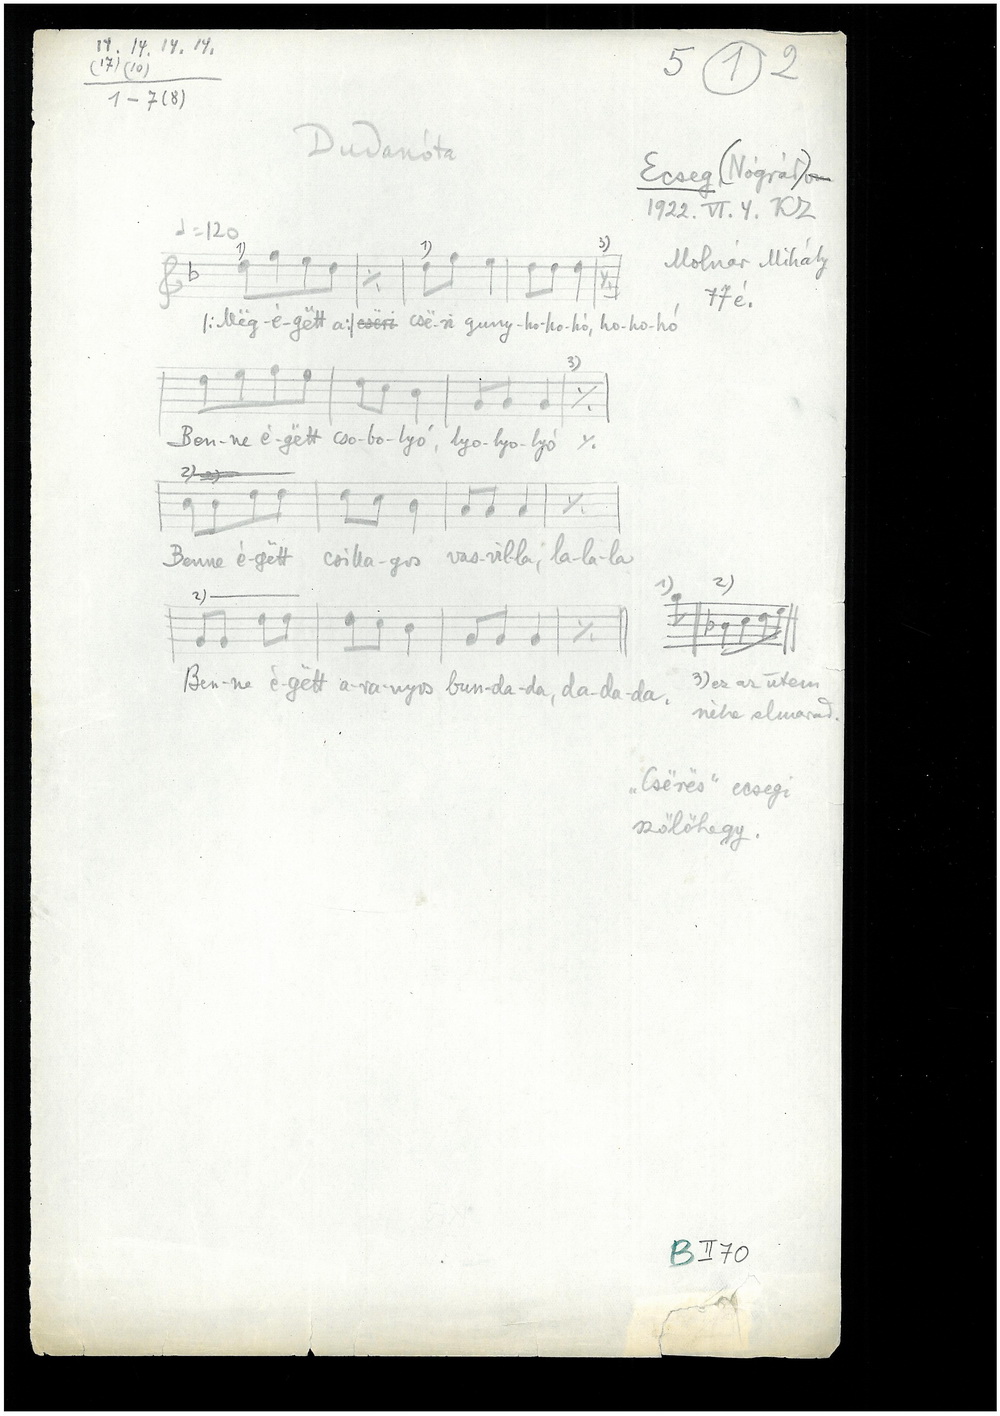 14. 14. 14. 14.
(17) (10)
1 – 7(8)
5 1 2
Dudanóta
Ecseg (Nógrád)
1922. VI. 4. KZ
Molnár Mihály
77 é.
♩=120
1) 1) 3)
|: Mëg-é-gëtt a :| csëri csë-ri guny-ho-ho-hó, ho-ho-hó
3)
Ben-ne é-gëtt cso-bo-lyó, lyo-lyo-lyó ٪.
2)
Benne é-gëtt csilla-gos vas-vil-la, la-la-la
2)
Ben-ne é-gëtt a-ra-nyos bun-da-da, da-da-da.
1) 2)
3) ez az ütem
néha elmarad.
„Csërës" ecsegi
szőlőhegy.
B II 70